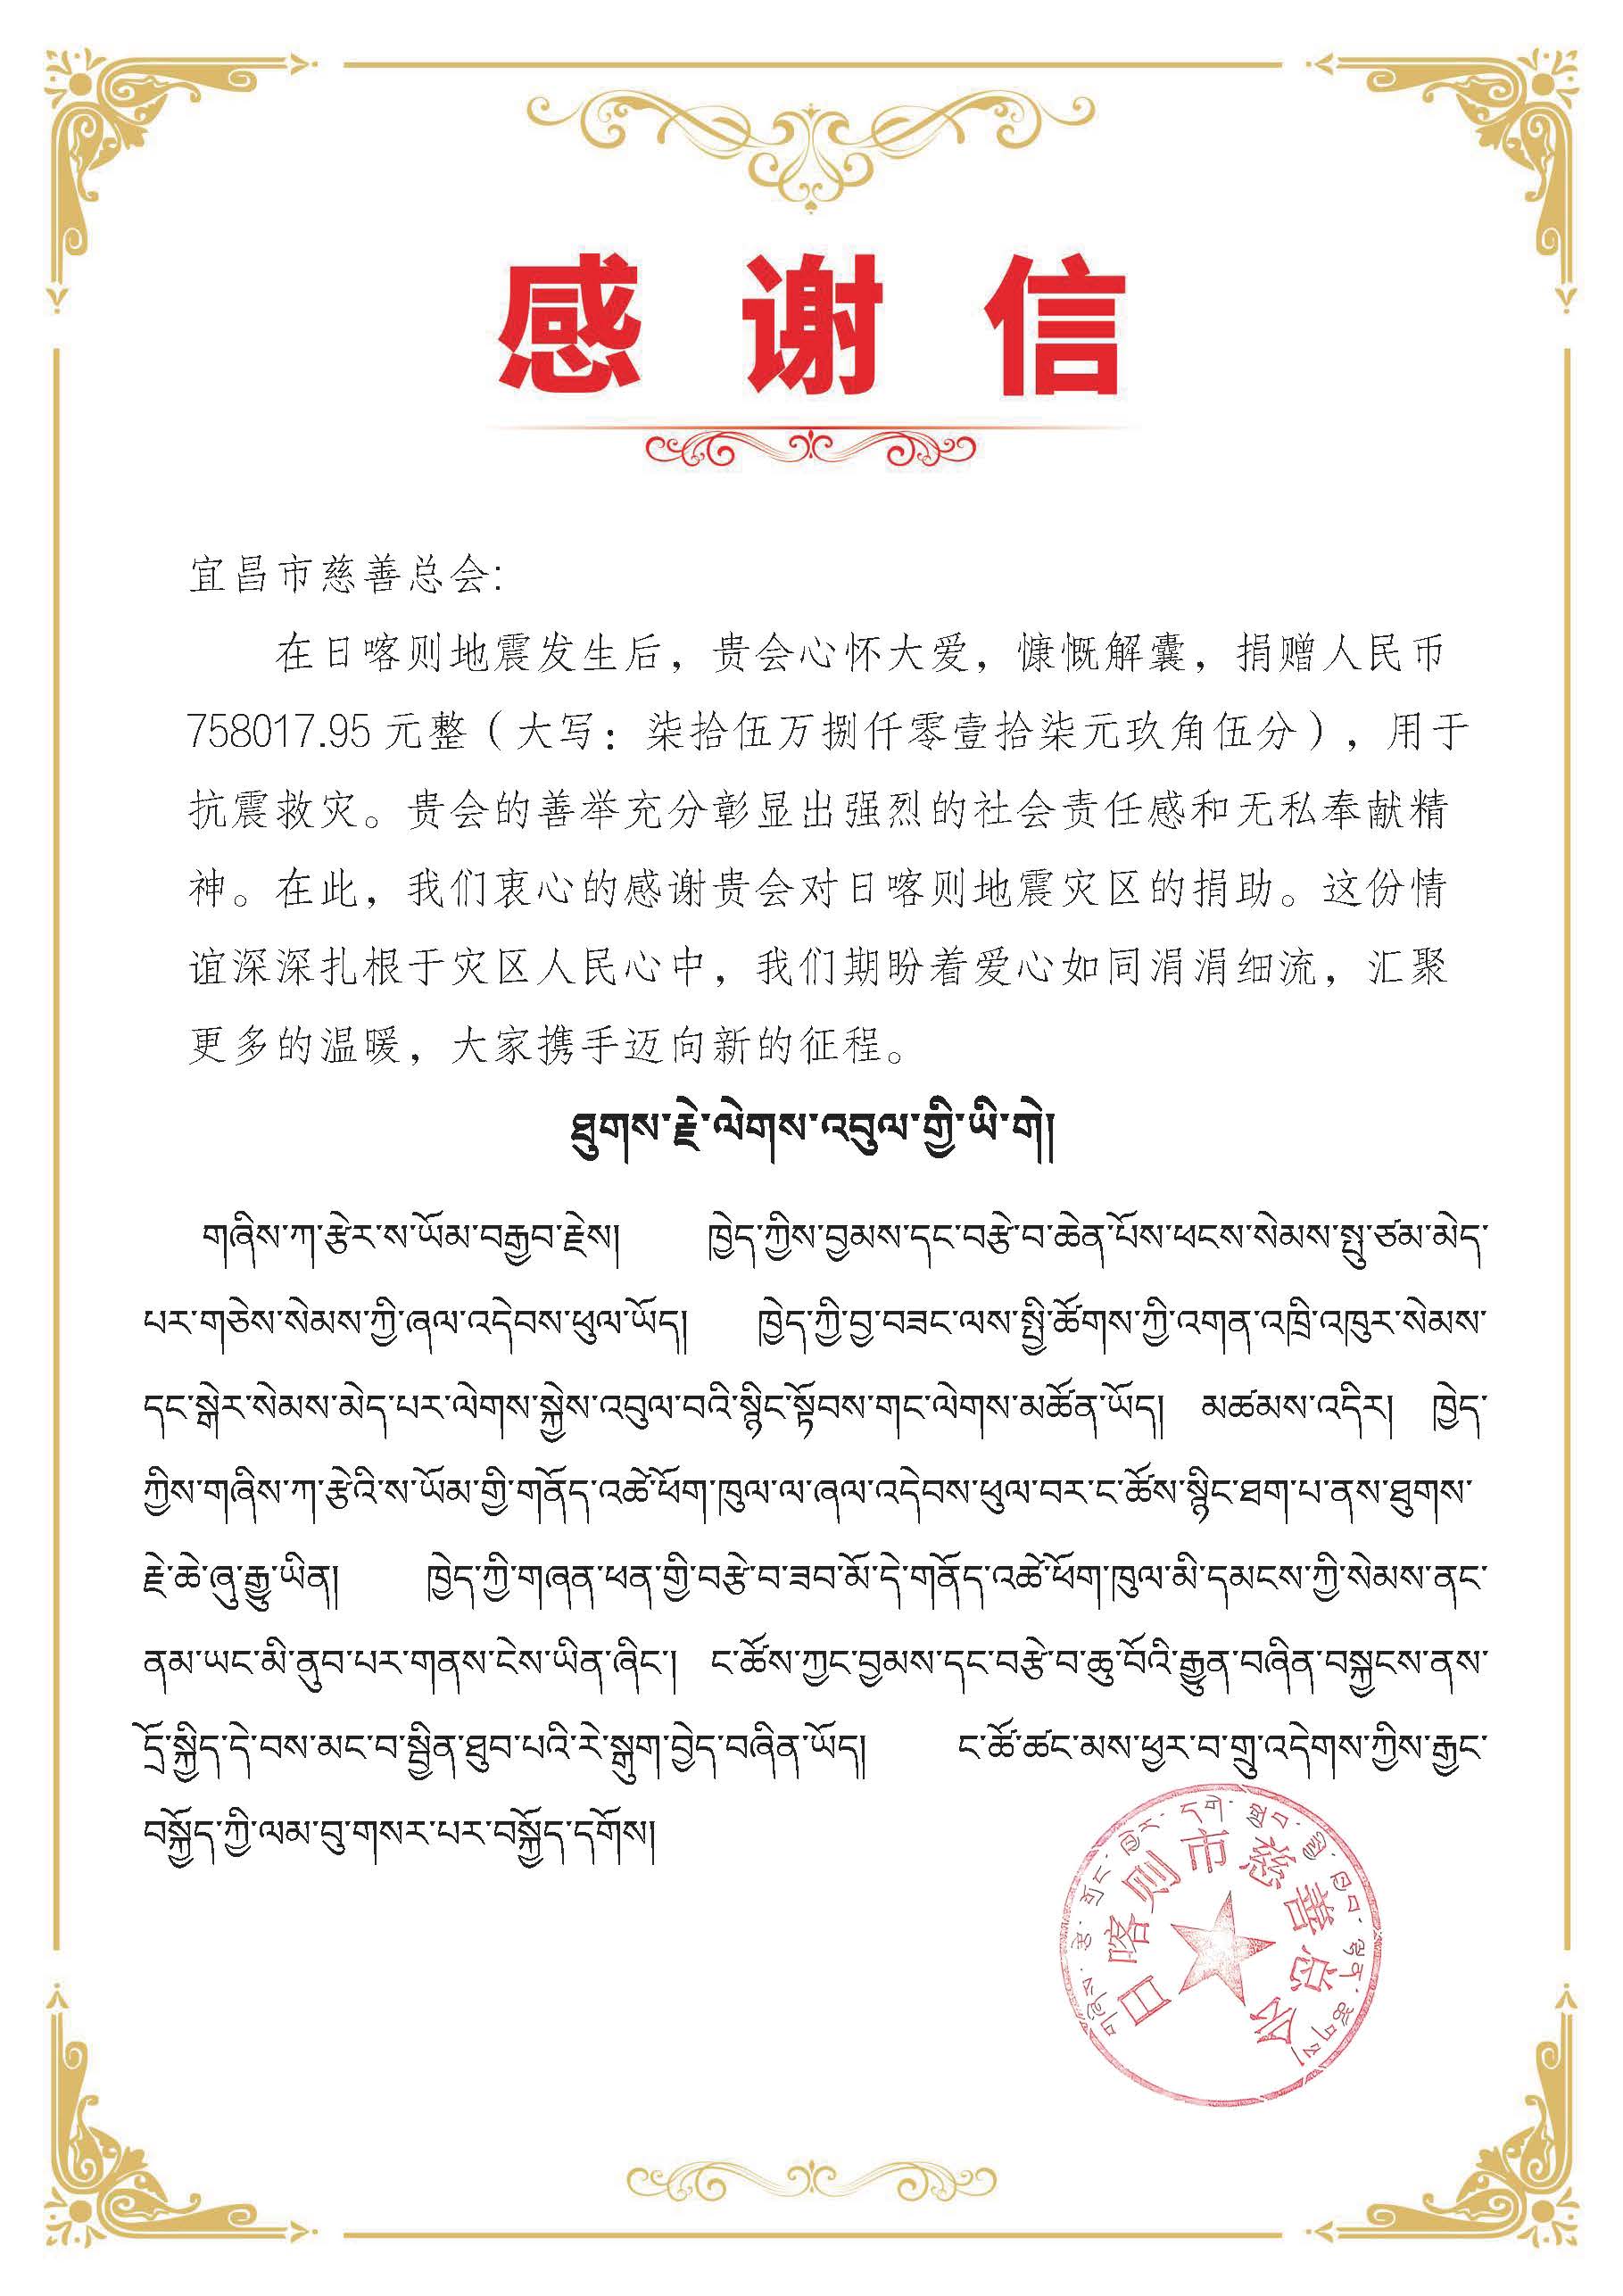 感谢信
宜昌市慈善总会:
在日喀则地震发生后，贵会心怀大爱，慷慨解囊，捐赠人民币
758017.95 元整（大写：柒拾伍万捌仟零壹拾柒元玖角伍分），用于
抗震救灾。贵会的善举充分彰显出强烈的社会责任感和无私奉献精
神。在此，我们衷心的感谢贵会对日喀则地震灾区的捐助。这份情
谊深深扎根于灾区人民心中，我们期盼着爱心如同涓涓细流，汇聚
更多的温暖，大家携手迈向新的征程。
ཐུགས་རྗེ་ལེགས་འབུལ་གྱི་ཡི་གེ།
གཞིས་ཀ་རྩེར་ས་ཡོམ་བརྒྱབ་རྗེས། ཁྱེད་ཀྱིས་བྱམས་དང་བརྩེ་བ་ཆེན་པོས་ཕངས་སེམས་སྤུ་ཙམ་མེད་
པར་གཅེས་སེམས་ཀྱི་ཞལ་འདེབས་ཕུལ་ཡོད། ཁྱེད་ཀྱི་བྱ་བཟང་ལས་སྤྱི་ཚོགས་ཀྱི་འགན་འཁྲི་འཁུར་སེམས་
དང་སྒེར་སེམས་མེད་པར་ལེགས་སྐྱེས་འབུལ་བའི་སྙིང་སྟོབས་གང་ལེགས་མཚོན་ཡོད། མཚམས་འདིར། ཁྱེད་
ཀྱིས་གཞིས་ཀ་རྩེའི་ས་ཡོམ་གྱི་གནོད་འཚེ་ཕོག་ཁུལ་ལ་ཞལ་འདེབས་ཕུལ་བར་ང་ཚོས་སྙིང་ཐག་པ་ནས་ཐུགས་
རྗེ་ཆེ་ཞུ་རྒྱུ་ཡིན། ཁྱེད་ཀྱི་གཞན་ཕན་གྱི་བརྩེ་བ་ཟབ་མོ་དེ་གནོད་འཚེ་ཕོག་ཁུལ་མི་དམངས་ཀྱི་སེམས་ནང་
ནམ་ཡང་མི་ནུབ་པར་གནས་ངེས་ཡིན་ཞིང་། ང་ཚོས་ཀྱང་བྱམས་དང་བརྩེ་བ་ཆུ་བོའི་རྒྱུན་བཞིན་བསྐྱངས་ནས་
དྲོ་སྐྱིད་དེ་བས་མང་བ་སྦྱིན་ཐུབ་པའི་རེ་སྒུག་བྱེད་བཞིན་ཡོད། ང་ཚོ་ཚང་མས་ཕྱར་བ་གྲུ་འདེགས་ཀྱིས་རྒྱང་
བསྐྱོད་ཀྱི་ལམ་བུ་གསར་པར་བསྐྱོད་དགོས།
日喀则市慈善总会